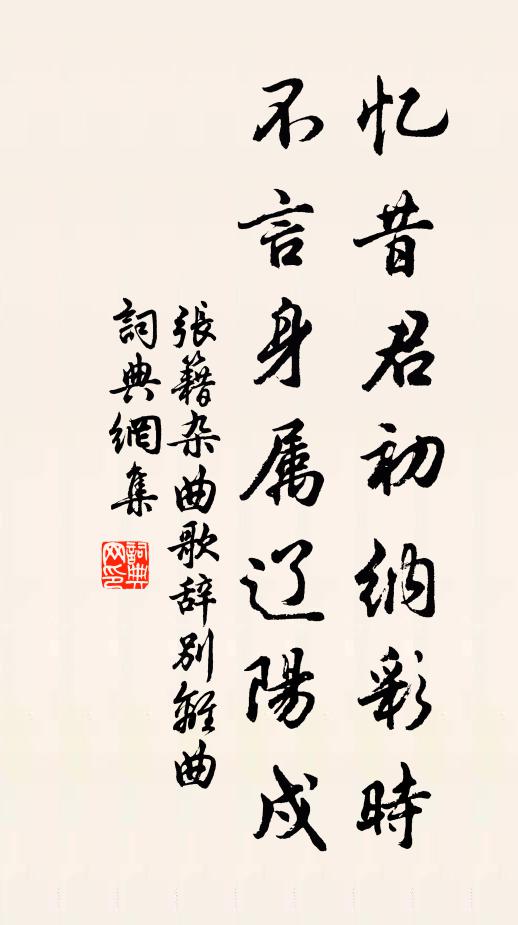 忆昔君初纳彩時
不言身属辽陽戍
張籍杂曲歌辞别離曲
詞典網集
詞典网印